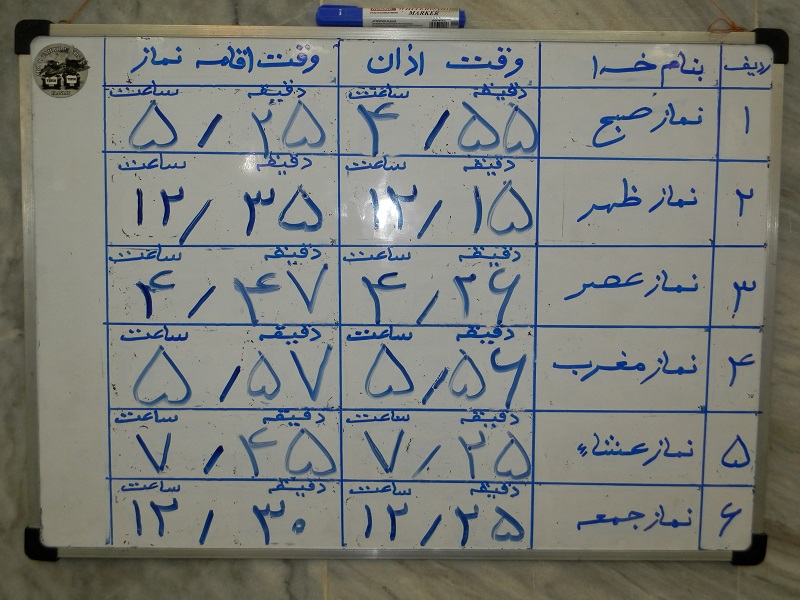 MARKER
ردیف بنام خدا وقت اذان وقت اقامه نماز
ساعت دقیقه ساعت دقیقه
۱ نماز صبح ۴ / ۵۵ ۵ / ۲۵
ساعت دقیقه ساعت دقیقه
۲ نماز ظهر ۱۲ / ۱۵ ۱۲ / ۳۵
ساعت دقیقه ساعت دقیقه
۳ نماز عصر ۴ / ۲۶ ۴ / ۴۷
ساعت دقیقه ساعت دقیقه
۴ نماز مغرب ۵ / ۵۶ ۵ / ۵۷
ساعت دقیقه ساعت دقیقه
۵ نماز عشاء ۷ / ۲۵ ۷ / ۴۵
ساعت دقیقه ساعت دقیقه
۶ نماز جمعه ۱۲ / ۲۵ ۱۲ / ۳۰